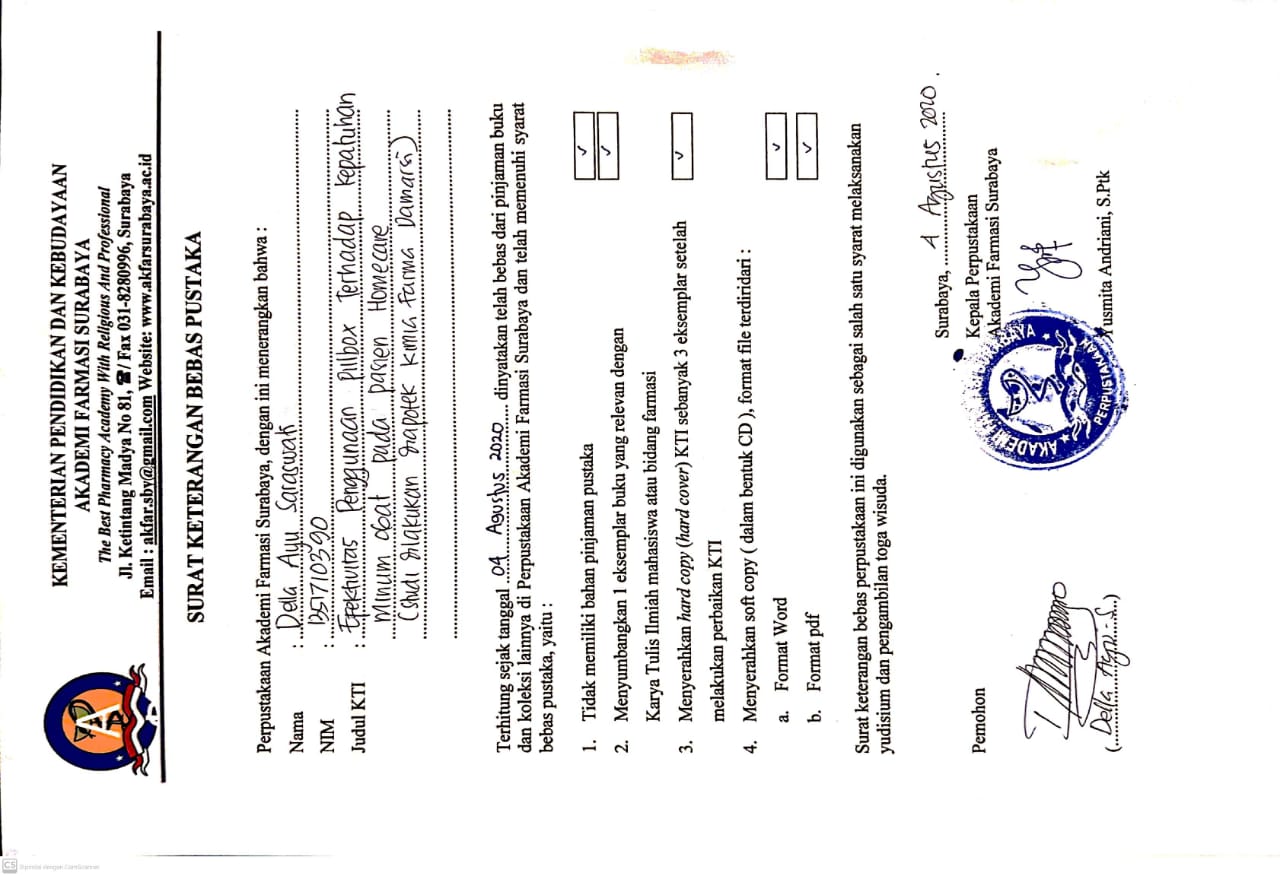 KEMENTERIAN PENDIDIKAN DAN KEBUDAYAAN
AKADEMI FARMASI SURABAYA
The Best Pharmacy Academy With Religious And Professional
Jl. Ketintang Madya No 81, ☎/ Fax 031-8280996, Surabaya
Email : akfar.sby@gmail.com Website: www.akfarsurabaya.ac.id
SURAT KETERANGAN BEBAS PUSTAKA
Perpustakaan Akademi Farmasi Surabaya, dengan ini menerangkan bahwa :
Nama : Della Ayu Saraswati
NIM : 1351710390
Judul KTI : Efektivitas Penggunaan Pillbox Terhadap Kepatuhan
Minum obat pada pasien Homecare
(Studi dilakukan Kimia Farma Damarsi)
Terhitung sejak tanggal 04 Agustus 2020 dinyatakan telah bebas dari pinjaman buku
dan koleksi lainnya di Perpustakaan Akademi Farmasi Surabaya dan telah memenuhi syarat
bebas pustaka, yaitu :
1. Tidak memiliki bahan pinjaman pustaka ✓
2. Menyumbangkan 1 eksemplar buku yang relevan dengan ✓
Karya Tulis Ilmiah mahasiswa atau bidang farmasi
3. Menyerahkan hard copy (hard cover) KTI sebanyak 3 eksemplar setelah ✓
melakukan perbaikan KTI
4. Menyerahkan soft copy ( dalam bentuk CD ), format file terdiridari :
a. Format Word ✓
b. Format pdf ✓
Surat keterangan bebas perpustakaan ini digunakan sebagai salah satu syarat melaksanakan
yudisium dan pengambilan toga wisuda.
Surabaya, 4 Agustus 2020.
Pemohon
Kepala Perpustakaan
Akademi Farmasi Surabaya
PERPUSTAKAAN
(Della Ayu .S.)
Yusmita Andriani, S.Ptk
CS Dipindai dengan CamScanner